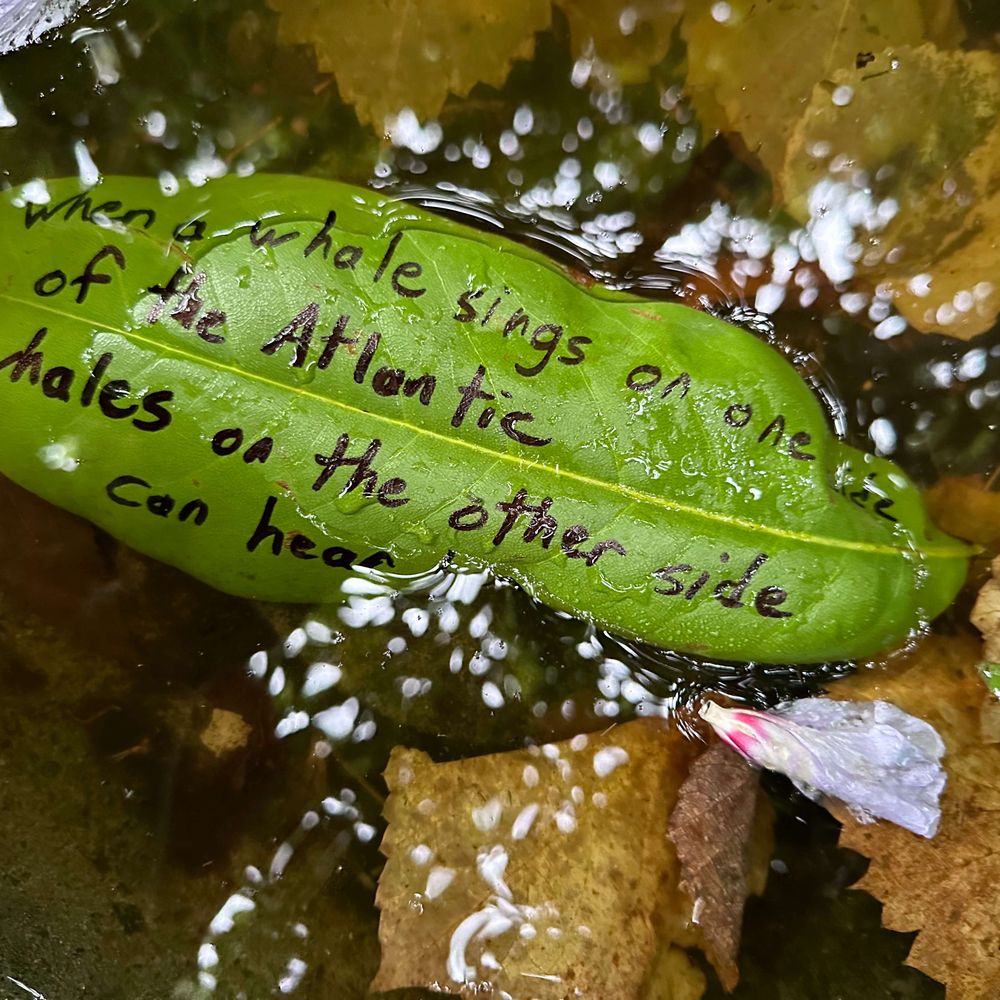 when a whale sings on one side
of the Atlantic
hales on the other side
can hear